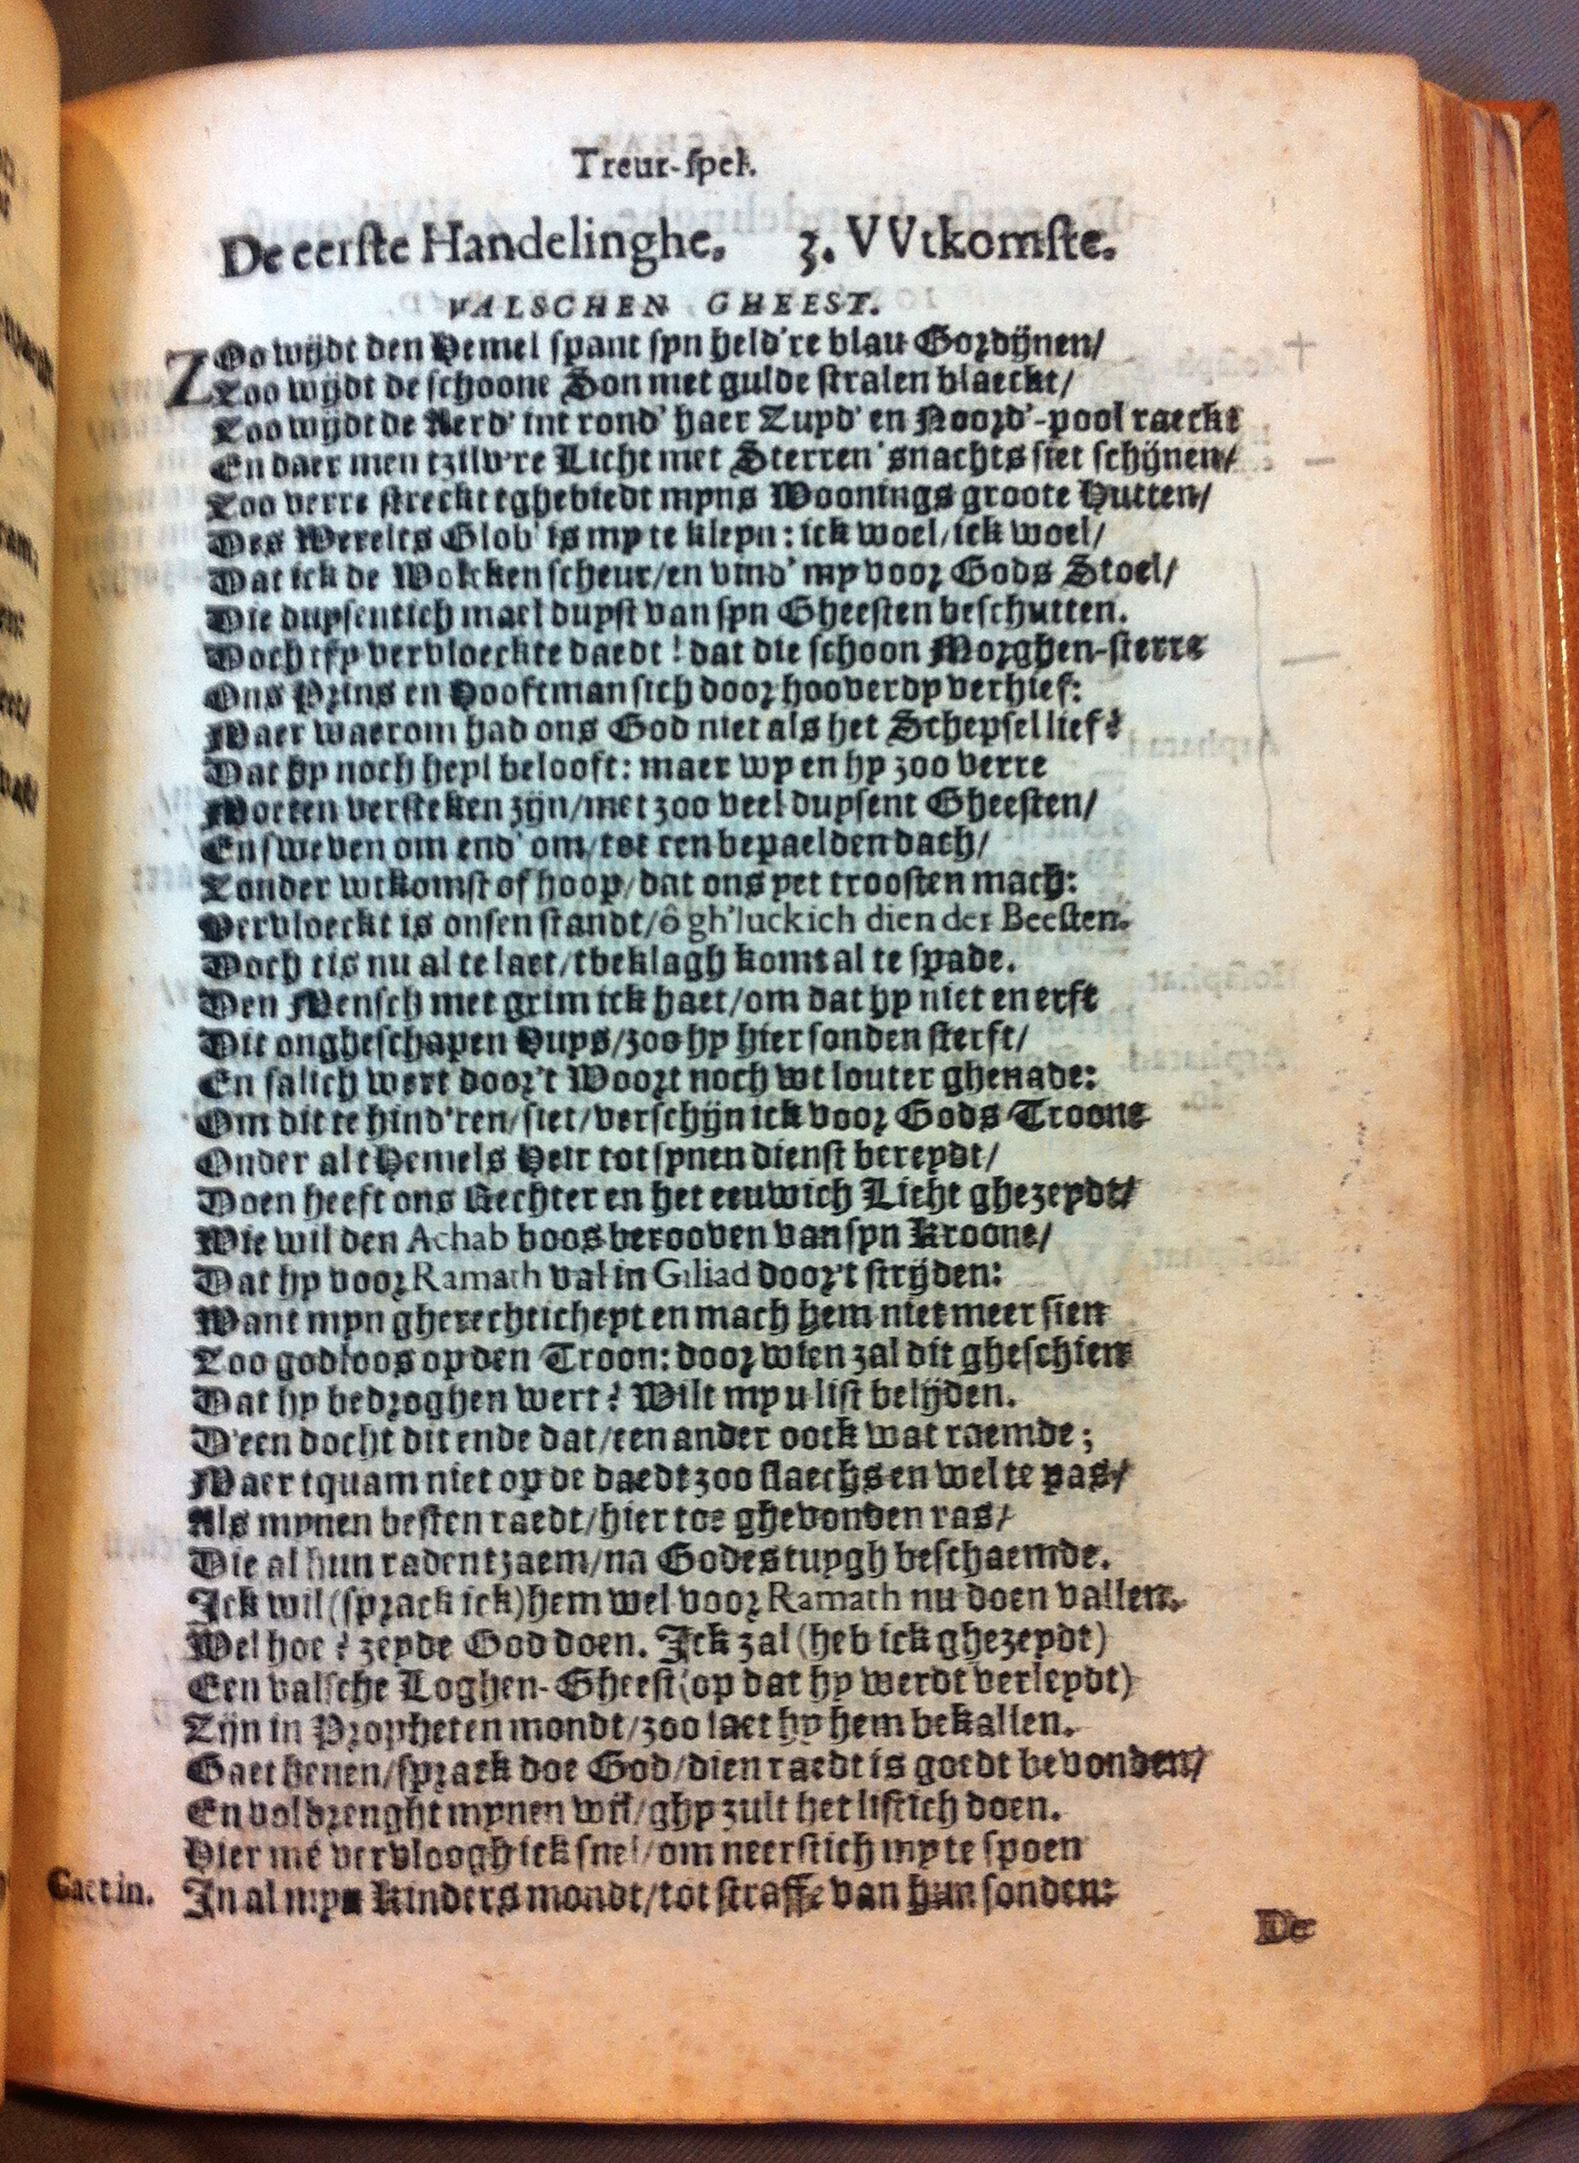 Treur-spel.
De eerste Handelinghe. 3. VVtkomste.
VALSCHEN GHEEST.
ZOo wijdt den Hemel spant syn held're blau Gordijnen/
Zoo wijdt de schoone Son met gulde stralen blaeckt/
Zoo wijdt de Aerd' int rond' haer Zuyd' en Noord'-pool raeckt
En daer men tzilv're Licht met Sterren 'snachts siet schijnen/
Zoo verre streckt tghebiedt myns Woonings groote Hutten/
Des Werelts Glob' is my te kleyn: ick woel/ick woel/
Dat ick de Wolcken scheur/en vind' my voor Gods Stoel/
Die duysentich mael duyst van syn Gheesten beschutten.
Doch tsy vervloeckte daedt! dat die schoon Morghen-sterre
Ons Prins en Hooftman sich door hooverdy verhief:
Maer waerom had ons God niet als het Schepsel lief?
Dat hy noch heyl belooft: maer wy en hy zoo verre
Moeten versteken zijn/met zoo veel duysent Gheesten/
En sweven om end' om/tot een bepaelden dach/
Zonder wtkomst of hoop/dat ons yet troosten mach:
Vervloeckt is onsen standt/ô gh'luckich dien der Beesten.
Doch tis nu al te laet/tbeklagh komt al te spade.
Den Mensch met grim ick haet/om dat hy niet en erft
Dit ongheschapen Huys/zoo hy hier sonden sterft/
En salich wert door't Woort noch wt louter ghenade:
Om dit te hind'ren/siet/verschijn ick voor Gods Troone
Onder al tHemels Heir tot synen dienst bereydt/
Doen heeft ons Rechter en het eeuwich Licht ghezeydt/
Wie wil den Achab boos berooven van syn Kroone/
Dat hy voor Ramath val in Giliad door't strijden:
Want myn gherechticheyt en mach hem niet meer sien
Zoo godloos op den Troon: door wien zal dit gheschien
Dat hy bedroghen wert? Wilt my u list belijden.
D'een docht dit ende dat/een ander oock wat raemde;
Maer tquam niet op de daedt zoo slaechs en wel te pas/
Als mynen besten raedt/hier toe ghevonden ras/
Die al hun raden tzaem/na Godes tuygh beschaemde.
Ick wil (sprack ick) hem wel voor Ramath nu doen vallen.
Wel hoe? zeyde God doen. Ick zal (heb ick ghezeydt)
Een valsche Loghen-Gheest (op dat hy werdt verleydt)
Zijn in Propheten mondt/zoo laet hy hem bekallen.
Gaet henen/sprack doe God/dien raedt is goedt bevonden/
En volbrenght mynen wil/ghy zult het listich doen.
Hier mé vervloogh ick snel/om neerstich my te spoen
Gaet in. In al myn kinders mondt/tot straffe van hun sonden:
De